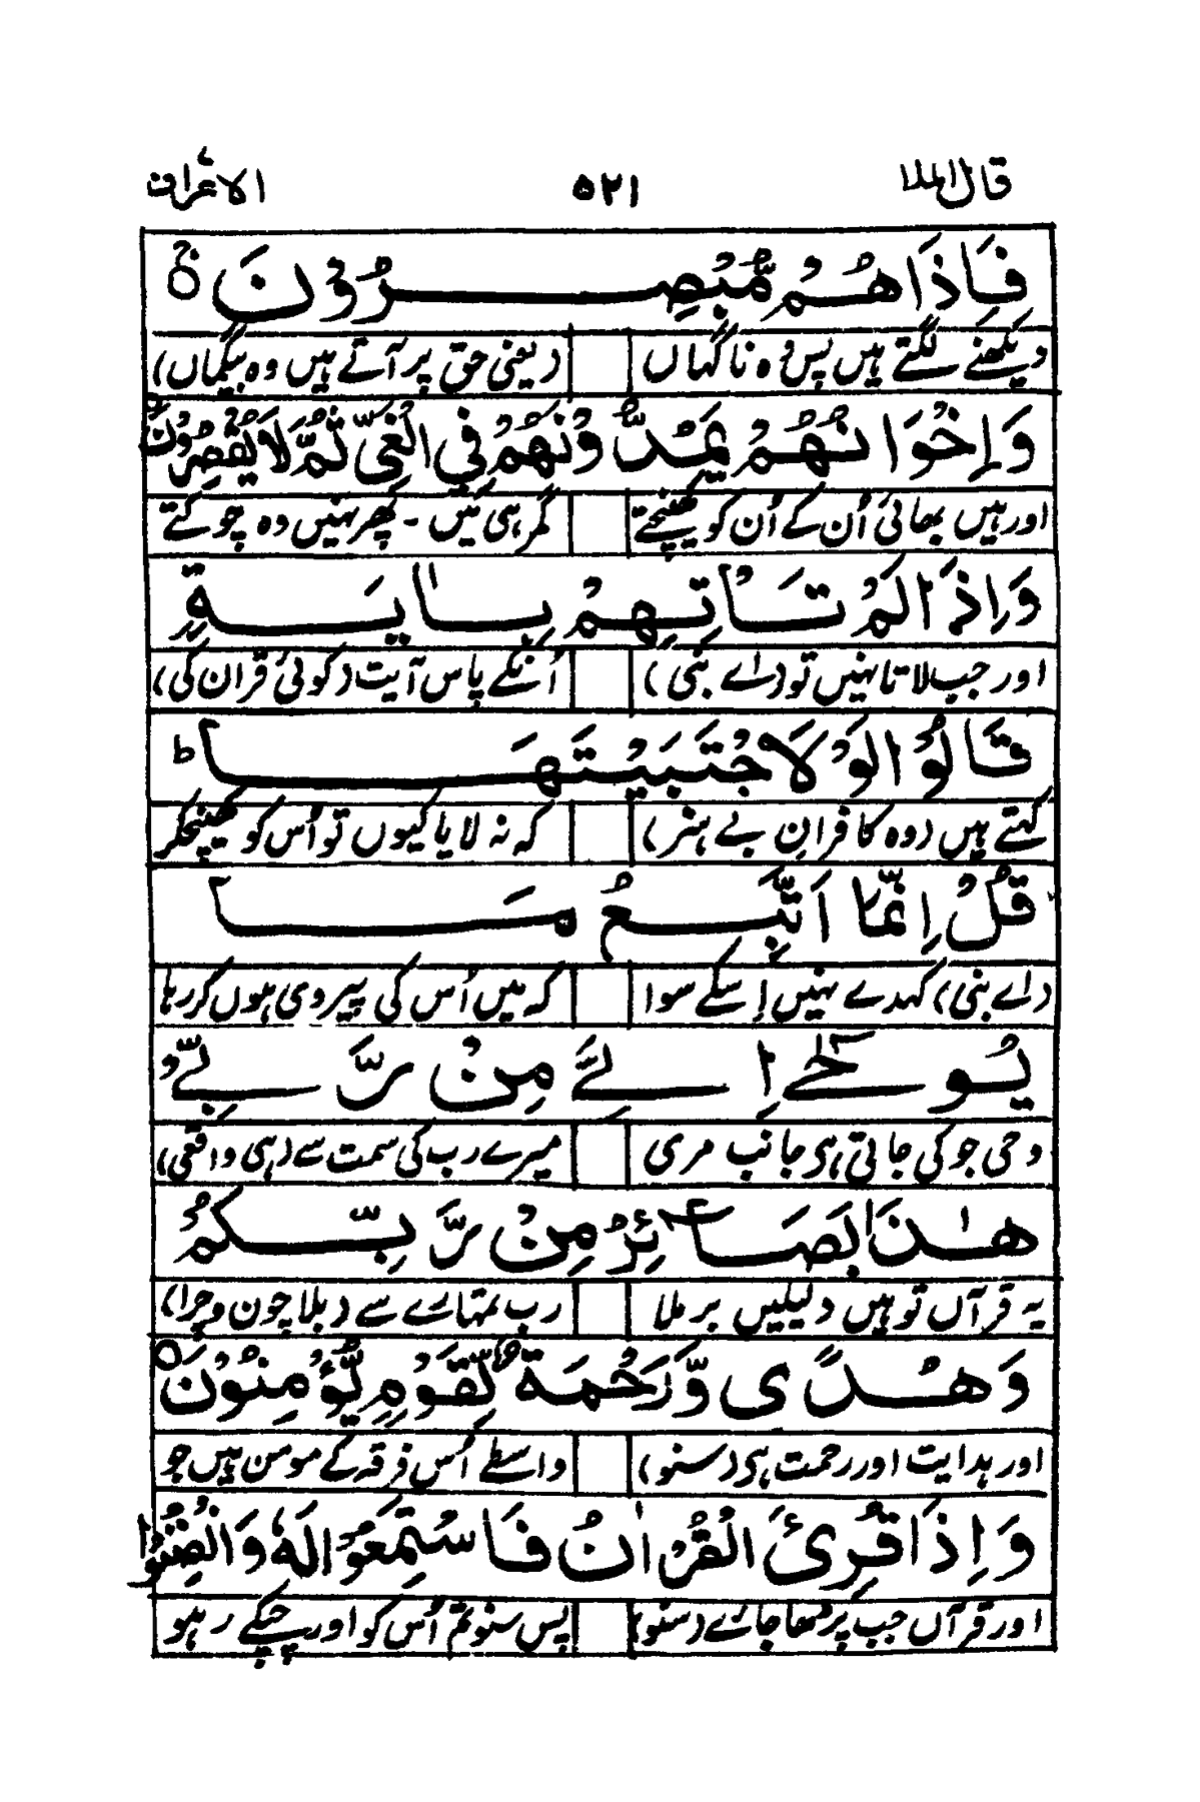 قال الملا ۵۲۱ الاعراف
فَاِذَا هُمْ مُّبْصِرُوْنَ ۚ
دیکھنے لگتے ہیں پس وہ ناگہاں (یعنی حق پر آتے ہیں وہ بیگماں)
وَاِخْوَانُهُمْ يَمُدُّوْنَهُمْ فِي الْغَيِّ ثُمَّ لَا يُقْصِرُوْنَ
اور ہیں بھائی اُن کے اُن کو کھینچتے گمرہی میں ۔ پھر نہیں وہ چوکتے
وَاِذَا لَمْ تَاْتِهِمْ بِاٰيَةٍ
اور جب لاتا نہیں تو (اے نبی) اُنکے پاس آیت (کوئی قرآن کی)
قَالُوْا لَوْ لَا اجْتَبَيْتَهَا ط
کہتے ہیں (وہ کافرانِ بے ہنر) کہ نہ لایا کیوں تو اُس کو کھینچکر
قُلْ اِنَّمَا اَتَّبِعُ مَا
(اے نبی) کہدے نہیں اِسکے سوا کہ میں اُس کی پیروی ہوں کر رہا
يُوْحٰى اِلَيَّ مِنْ رَّبِّيْ
وحی جو کی جاتی ہی جانب مری میرے رب کی سمت سے (ہی واقعی)
هٰذَا بَصَآئِرُ مِنْ رَّبِّكُمْ
یہ قرآں تو ہیں دلیلیں برملا رب تمہارے سے (بلا چون و چرا)
وَهُدًى وَّرَحْمَةٌ لِّقَوْمٍ يُّؤْمِنُوْنَ
اور ہدایت اور رحمت ہی (سنو) واسطے اُس فرقہ کے مومن ہیں جو
وَاِذَا قُرِئَ الْقُرْاٰنُ فَاسْتَمِعُوْا لَهٗ وَاَنْصِتُوْا
اور قرآں جب پڑھا جائے (سنو) پس سنو تم اُس کو اور چپکے رہو